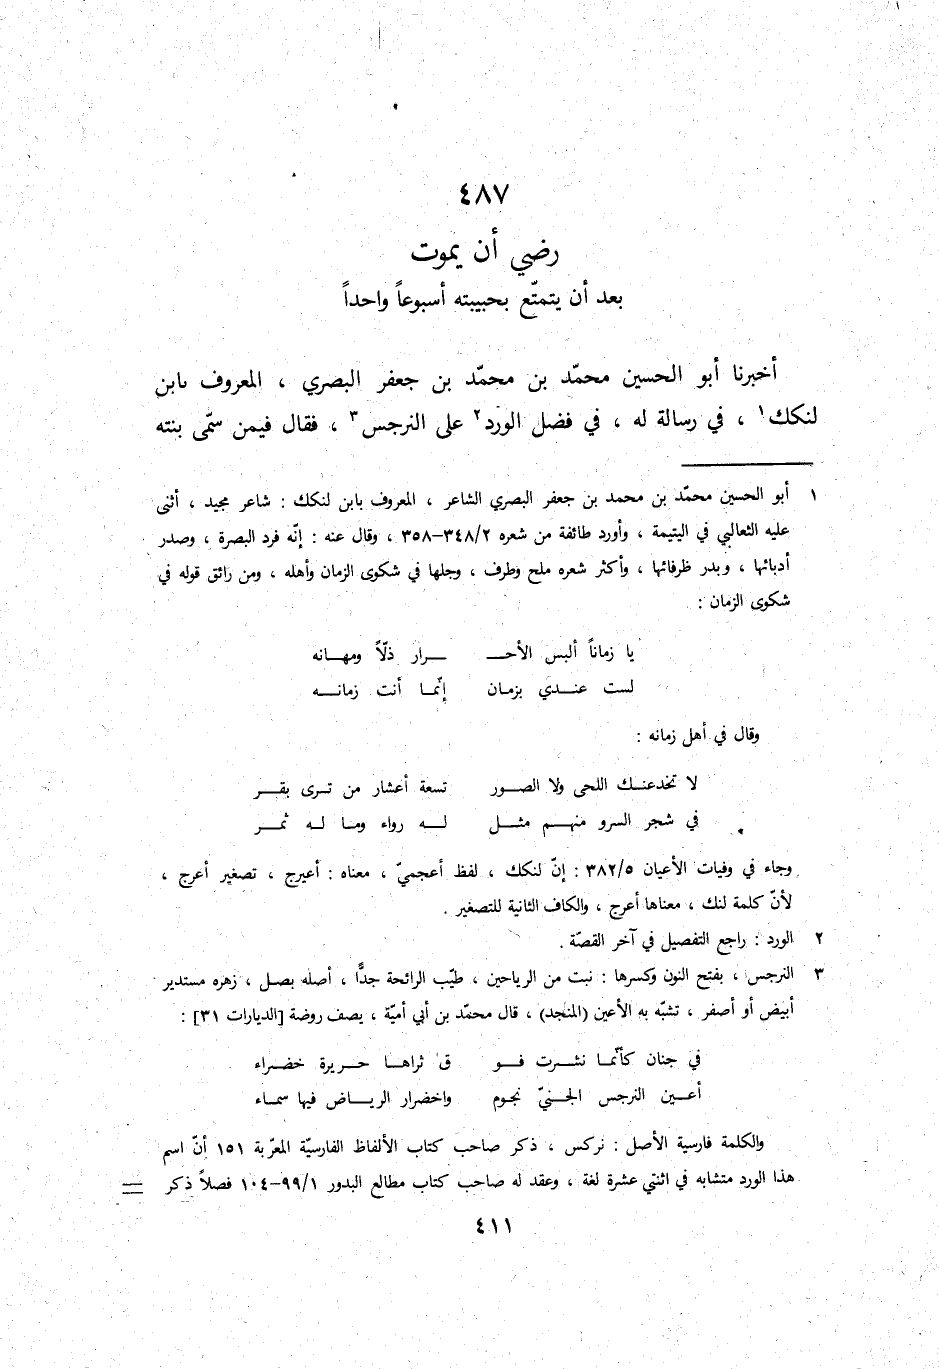 ٤٨٧
رضي أن يموت
بعد أن يتمتّع بحبيبته أسبوعاً واحداً
أخبرنا أبو الحسين محمّد بن محمّد بن جعفر البصري ، المعروف بابن
لنكك١ ، في رسالة له ، في فضل الورد٢ على النرجس٣ ، فقال فيمن سمّى بنته
١ أبو الحسين محمّد بن محمد بن جعفر البصري الشاعر ، المعروف بابن لنكك : شاعر مجيد ، أثنى
عليه الثعالبي في اليتيمة ، وأورد طائفة من شعره ٣٤٨/٢–٣٥٨ ، وقال عنه : إنّه فرد البصرة ، وصدر
أدبائها ، وبدر ظرفائها ، وأكثر شعره ملح وطرف ، وجلها في شكوى الزمان وأهله ، ومن رائق قوله في
شكوى الزمان :
يا زماناً ألبس الأحـ ـرار ذلّاً ومهانه
لست عندي بزمان إنّما أنت زمانه
وقال في أهل زمانه :
لا تخدعنك اللحى ولا الصور تسعة أعشار من ترى بقر
في شجر السرو منهم مثل له رواء وما له ثمر
وجاء في وفيات الأعيان ٣٨٢/٥ : إنّ لنكك ، لفظ أعجميّ ، معناه : أعيرج ، تصغير أعرج ،
لأنّ كلمة لنك ، معناها أعرج ، والكاف الثانية للتصغير .
٢ الورد : راجع التفصيل في آخر القصّة .
٣ النرجس ، بفتح النون وكسرها : نبت من الرياحين ، طيّب الرائحة جدًّا ، أصله بصل ، زهره مستدير
أبيض أو أصفر ، تشبّه به الأعين (المنجد) ، قال محمّد بن أبي أميّة ، يصف روضة [الديارات ٣١] :
في جنان كأنّما نشرت فو ق ثراها حريرة خضراء
أعين النرجس الجنيّ نجوم واخضرار الرياض فيها سماء
والكلمة فارسية الأصل : نركس ، ذكر صاحب كتاب الألفاظ الفارسيّة المعرّبة ١٥١ أنّ اسم
هذا الورد متشابه في اثنتي عشرة لغة ، وعقد له صاحب كتاب مطالع البدور ٩٩/١–١٠٤ فصلاً ذكر =
٤١١